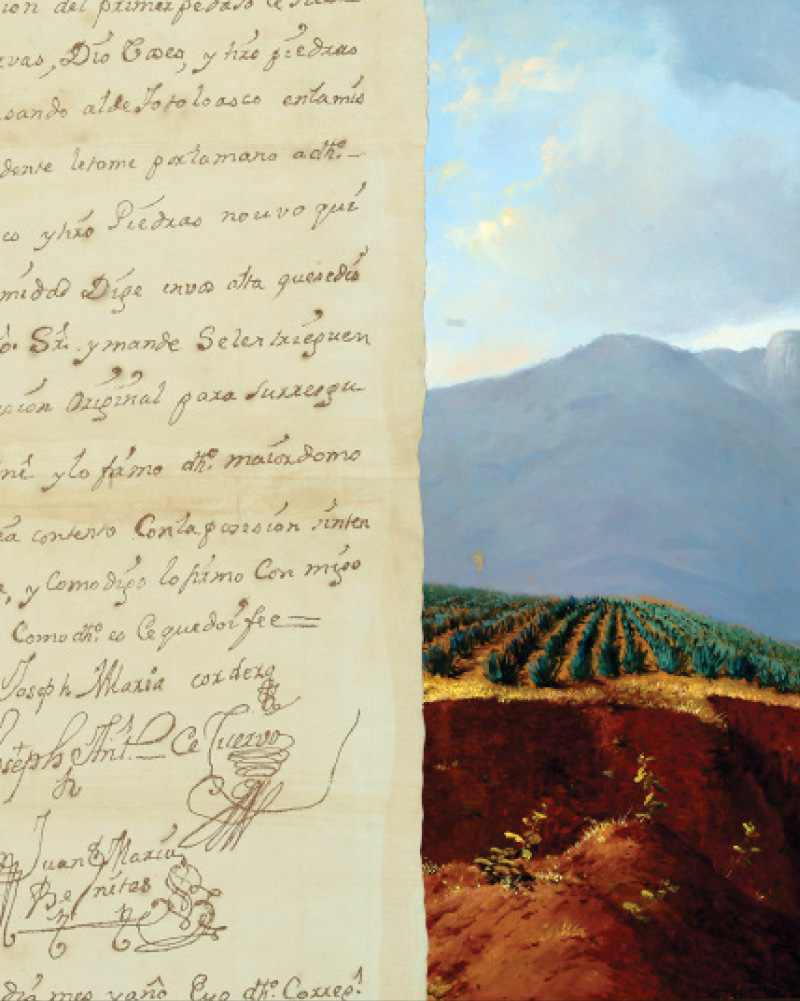 ion del primer pedaso de
rvas, Dio Coses, y tiro piedras
sando al de Totoloasco en la mis
dente le tome por la mano a dho.
co y tiro Piedras no uvo qui
midad Dije en vos alta que se dio
Sr. y mande Se le entrieguen
sion Original para su rresgu
y lo firmo dho. maiordomo
contento Con la posesion
e, y Como dijo lo firmo Con migo
Como dho. es Ce que doi fee
Joseph Maria cordero
Joseph Ant. Ce Cuervo
Juan Maria
Benites
dia mes y año Eyo dho. Correg.